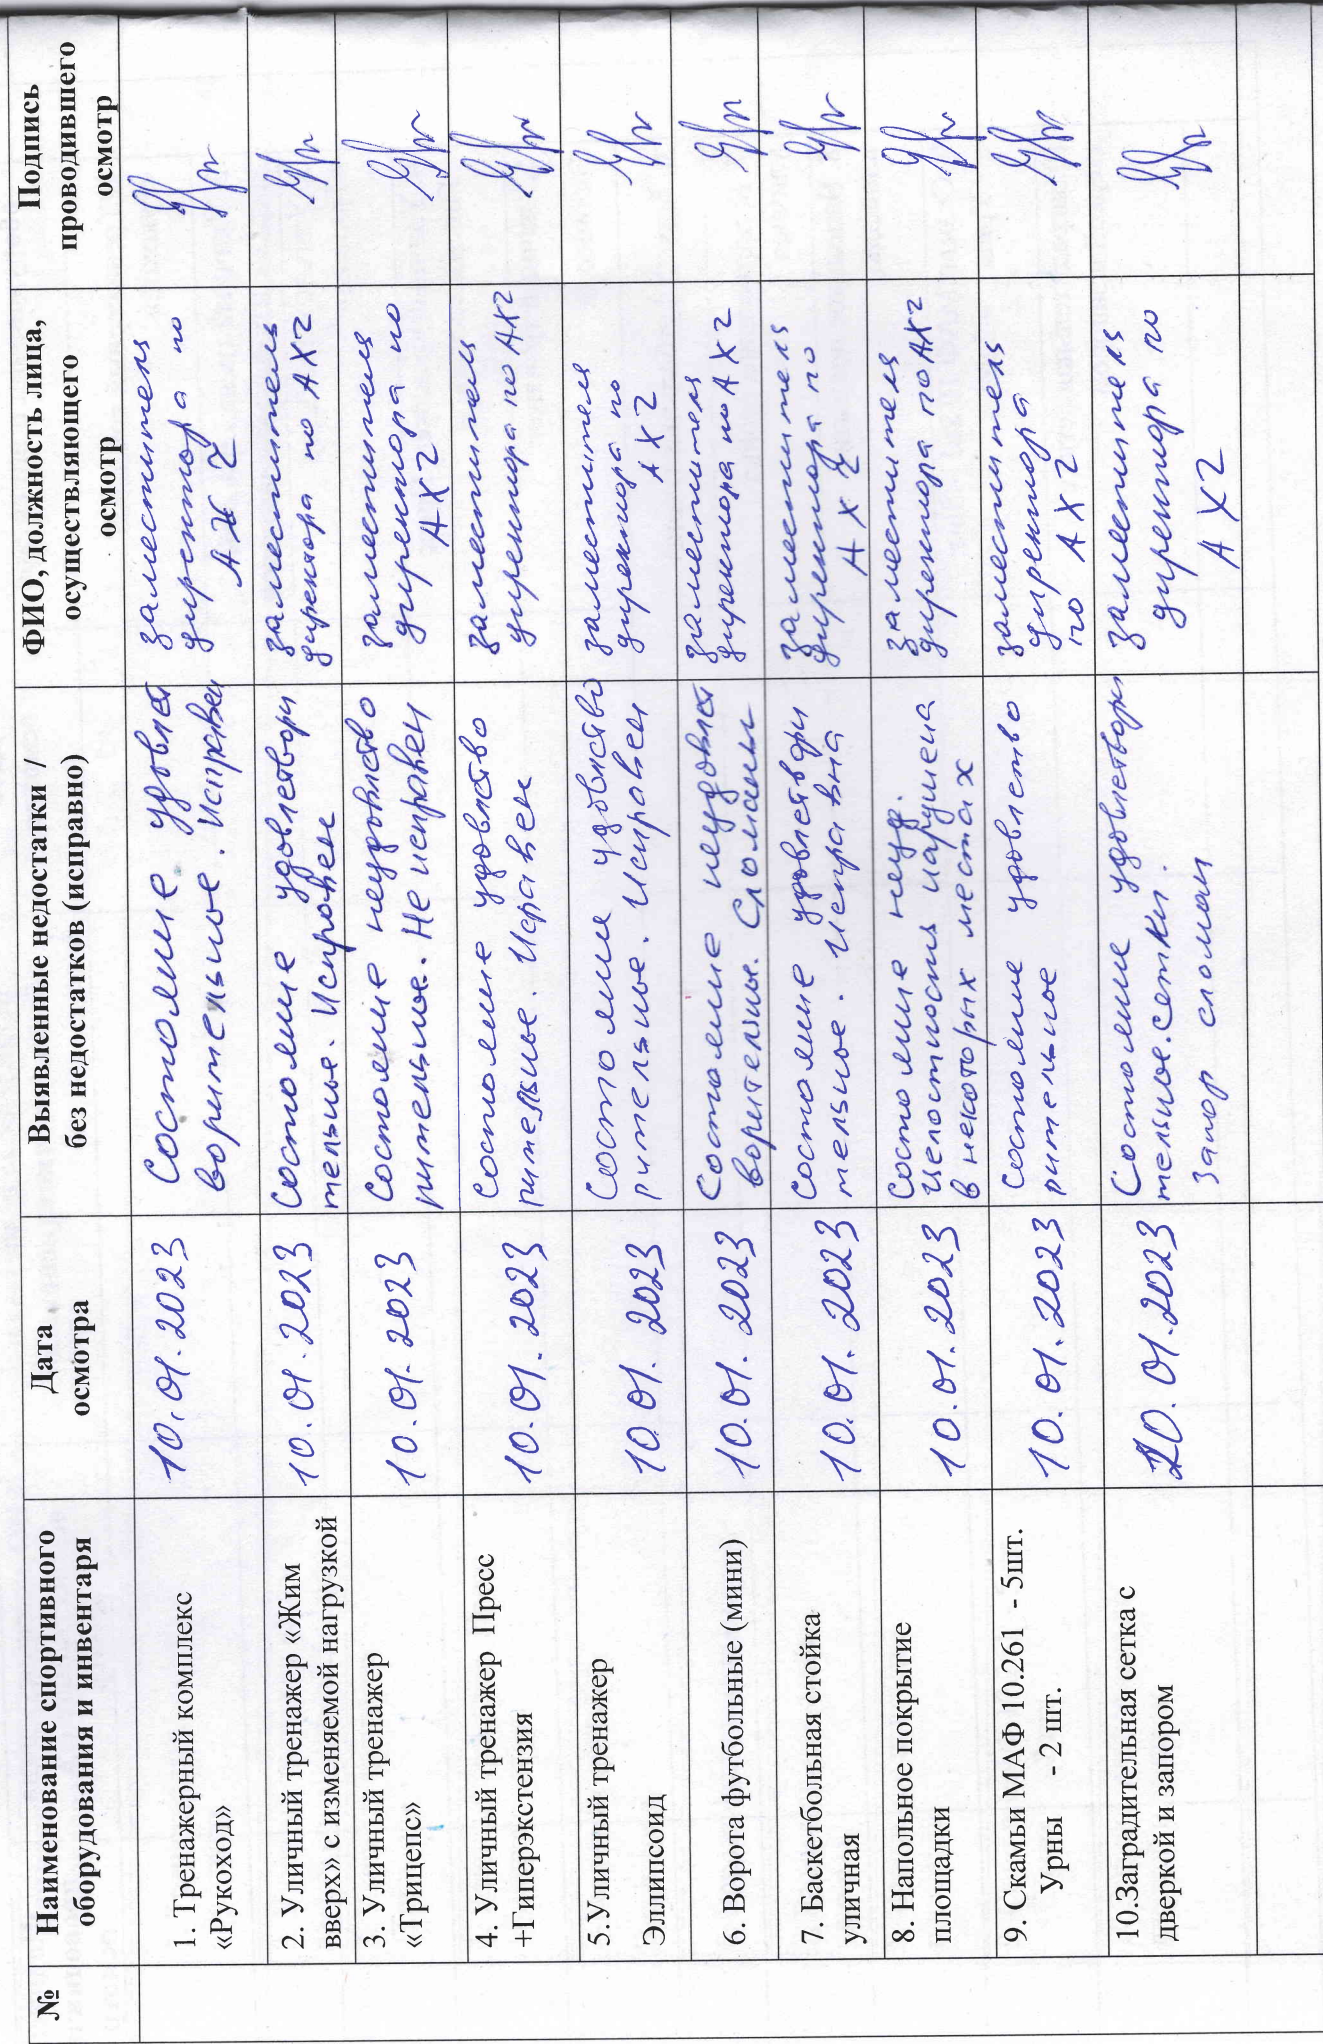 №
Наименование спортивного
оборудования и инвентаря
Дата
осмотра
Выявленные недостатки /
без недостатков (исправно)
ФИО, должность лица,
осуществляющего
осмотр
Подпись
проводившего
осмотр
1. Тренажерный комплекс
«Рукоход»
10.01.2023
Состояние удовлет
ворительное. Исправен
заместитель
директора по
АХЧ
2. Уличный тренажер «Жим
вверх» с изменяемой нагрузкой
10.01.2023
Состояние удовлетвори
тельное. Исправен
заместитель
директора по АХЧ
3. Уличный тренажер
«Трицепс»
10.01.2023
Состояние неудовлетво
рительное. Не исправен
заместителя
директора по
АХЧ
4. Уличный тренажер Пресс
+Гиперэкстензия
10.01.2023
Состояние удовлетво
рительное. Исравен
заместитель
директора по АХЧ
5.Уличный тренажер
Эллипсоид
10.01.2023
Состояние удовлетво
рительное. Исправен
заместитель
директора по
АХЧ
6. Ворота футбольные (мини)
10.01.2023
Состояние неудовлет
ворительное. Сломаны
заместитель
директора по АХЧ
7. Баскетбольная стойка
уличная
10.01.2023
Состояние удовлетвори
тельное. Исправна
заместитель
директора по
АХЧ
8. Напольное покрытие
площадки
10.01.2023
Состояние неуд.
Целостность нарушена
в некоторых местах
заместитель
директора по АХЧ
9. Скамьи МАФ 10.261 - 5шт.
Урны - 2 шт.
10.01.2023
Состояние удовлетво
рительное
заместитель
директора
по АХЧ
10.Заградительная сетка с
дверкой и запором
10.01.2023
Состояние удовлетвори
тельное. сетки.
Запор сломан
заместитель
директора по
АХЧ